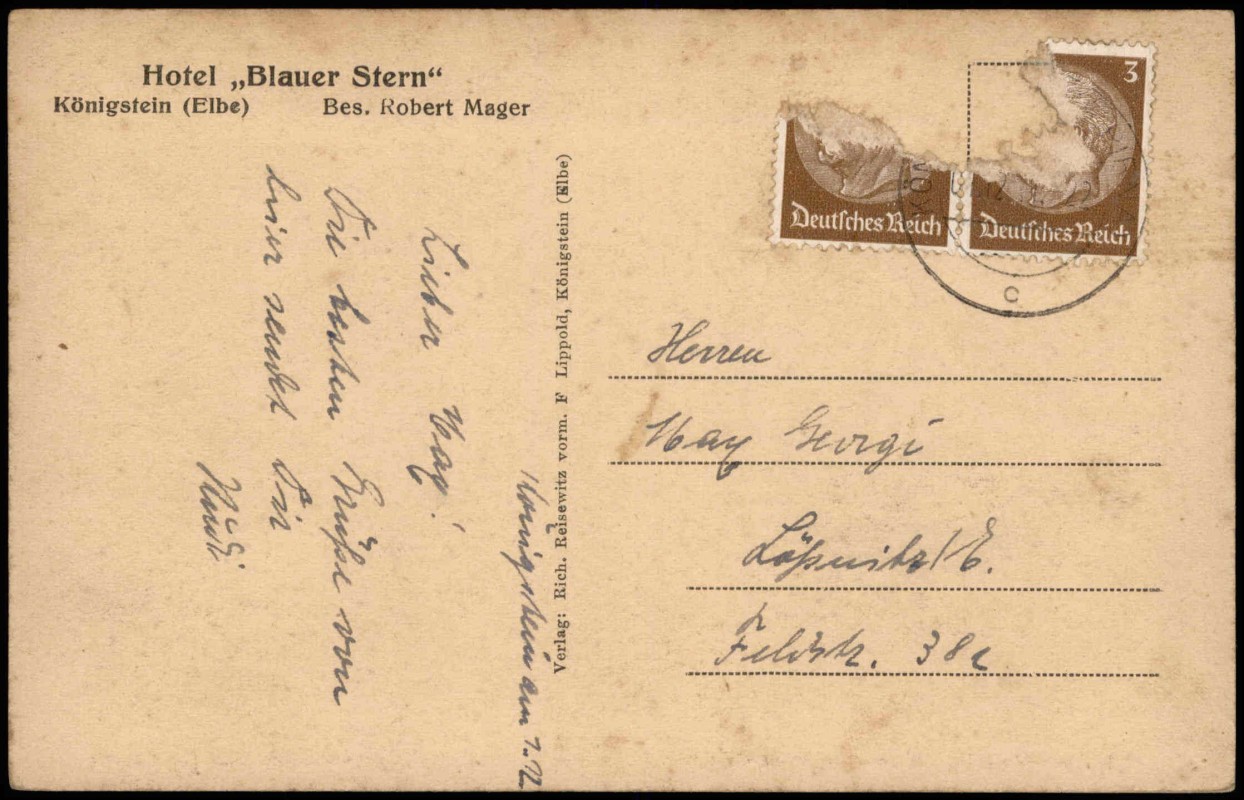 Hotel „Blauer Stern“
Königstein (Elbe) Bes. Robert Mager
Königstein am 1.
Lieber May!
Die besten Grüße von
hier sendet Dir
Verlag: Rich. Reisewitz vorm. F Lippold, Königstein (Elbe)
3
Deutsches Reich
Deutsches Reich
c
Herren
May Georgi
Lößnitz/E.
Feldstr. 38c